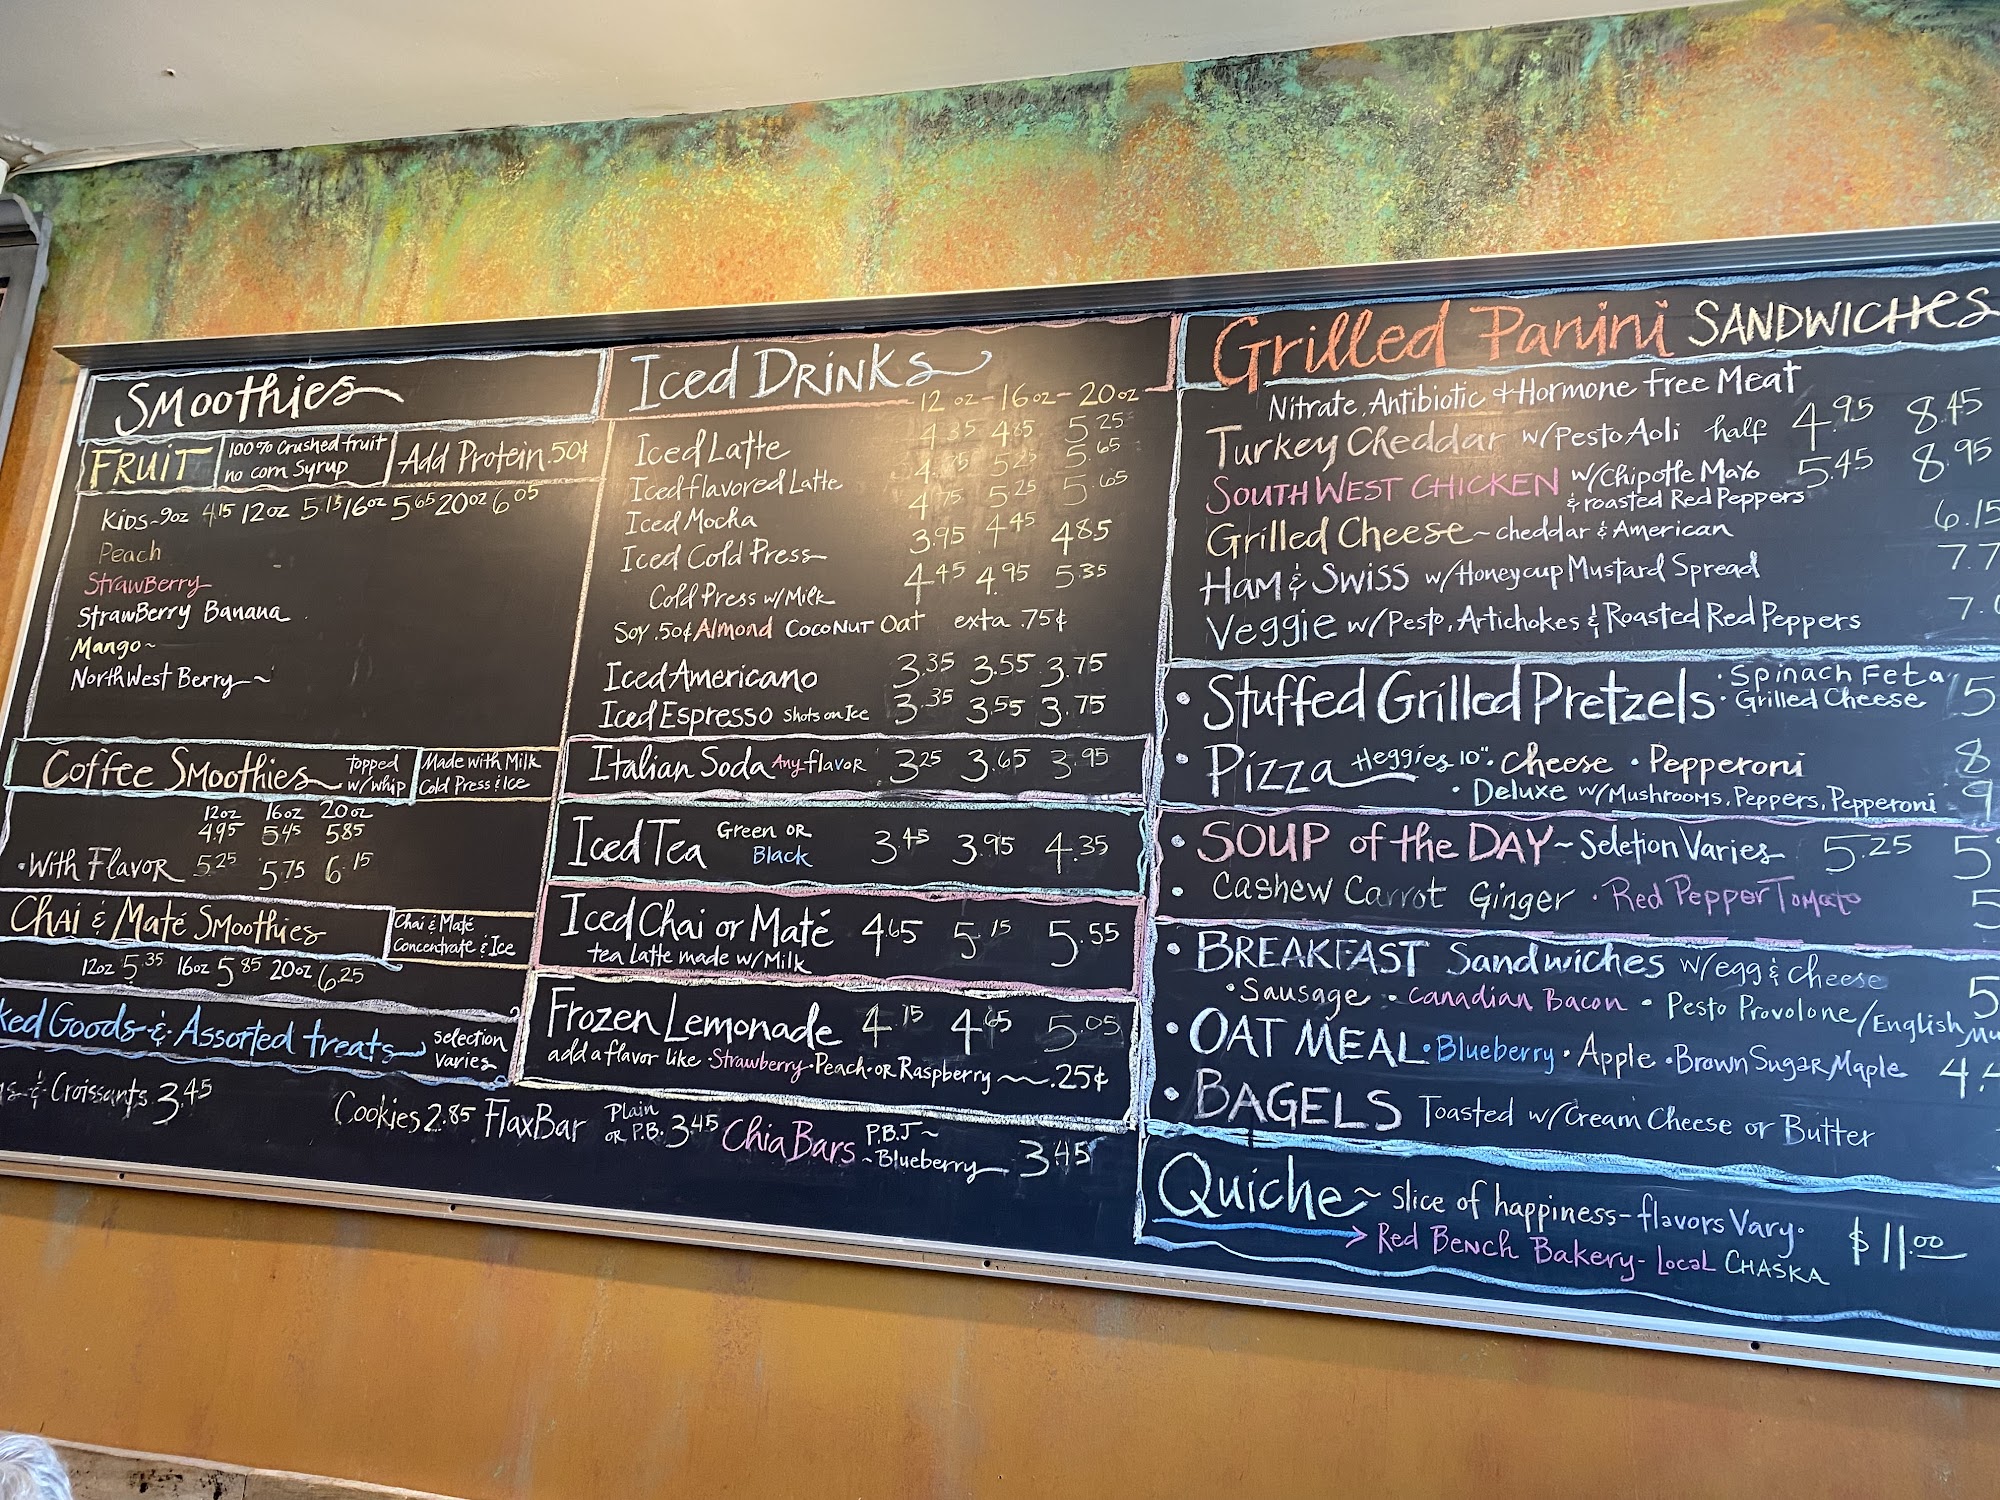 Smoothies
FRUIT
100% Crushed fruit
no corn Syrup
Add Protein .50¢
Kids~9oz 4.15 12oz 5.15 16oz 5.65 20oz 6.05
Peach
StrawBerry
StrawBerry Banana
Mango~
NorthWest Berry~
Coffee Smoothies
topped
w/whip
Made with Milk
Cold Press & Ice
12oz 16oz 20oz
4.95 5.45 5.85
•With Flavor 5.25 5.75 6.15
Chai & Maté Smoothies
Chai & Maté
Concentrate & Ice
12oz 5.35 16oz 5.85 20oz 6.25
ked Goods & Assorted treats
selection
varies
& Croissants 3.45
Cookies 2.85 FlaxBar Plain or P.B. 3.45 Chia Bars P.B.J~ ~Blueberry 3.45
Iced Drinks
12oz-16oz-20oz
Iced Latte 4.35 4.85 5.25
Iced flavored Latte 4.75 5.25 5.65
Iced Mocha 4.75 5.25 5.65
Iced Cold Press 3.95 4.45 4.85
Cold Press w/Milk 4.45 4.95 5.35
Soy .50¢ Almond Coconut Oat exta .75¢
Iced Americano 3.35 3.55 3.75
Iced Espresso Shots on Ice 3.35 3.55 3.75
Italian Soda Any flavor 3.25 3.65 3.95
Iced Tea Green or Black 3.45 3.95 4.35
Iced Chai or Maté 4.65 5.15 5.55
tea latte made w/Milk
Frozen Lemonade 4.15 4.65 5.05
add a flavor like •Strawberry •Peach •or Raspberry ~ .25¢
Grilled Panini Sandwiches
Nitrate, Antibiotic & Hormone free Meat
Turkey Cheddar w/Pesto Aoli half 4.95 8.45
SouthWest Chicken w/Chipotle Mayo & roasted Red Peppers 5.45 8.95
Grilled Cheese ~ cheddar & American 6.15
Ham & Swiss w/Honeycup Mustard Spread 7.7
Veggie w/Pesto, Artichokes & Roasted Red Peppers 7.
• Stuffed Grilled Pretzels •Spinach Feta •Grilled Cheese 5
• Pizza Heggies 10" • Cheese • Pepperoni 8
• Deluxe w/Mushrooms, Peppers, Pepperoni 9
• SOUP of the DAY ~ Seletion Varies 5.25 5
• Cashew Carrot Ginger • Red Pepper Tomato 5
• BREAKFAST Sandwiches w/egg & cheese
•Sausage • Canadian Bacon • Pesto Provolone/English Mu 5
• OATMEAL •Blueberry • Apple •Brown Sugar Maple 4.
• BAGELS Toasted w/Cream Cheese or Butter
Quiche ~ Slice of happiness-flavors Vary• $11.00
Red Bench Bakery - Local CHASKA